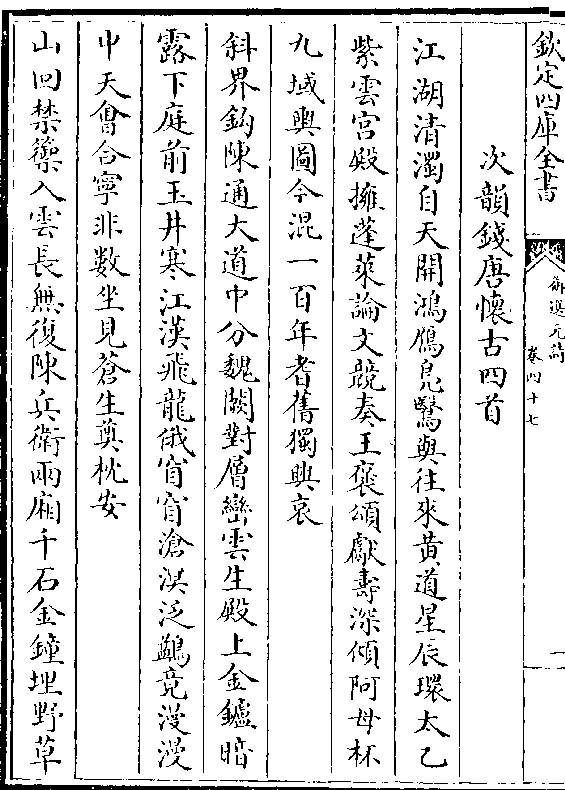 欽定四庫全書
御選元詩
卷四十七
一
次韻錢唐懷古四首
江湖清濁自天開鴻鴈鳧鷖與往來黄道星辰環太乙
紫雲宫殿擁蓬萊論文競奏王襃頌獻壽深傾阿母杯
九域輿圖今混一百年耆舊獨興哀
斜界鈎陳通大道中分魏闕對層巒雲生殿上金鑪暗
露下庭前玉井寒江漢飛龍俄窅窅滄溟泛鷁竟漫漫
中天會合寧非數坐見蒼生奠枕安
山回禁籞入雲長無復陳兵衛兩廂千石金鐘埋野草